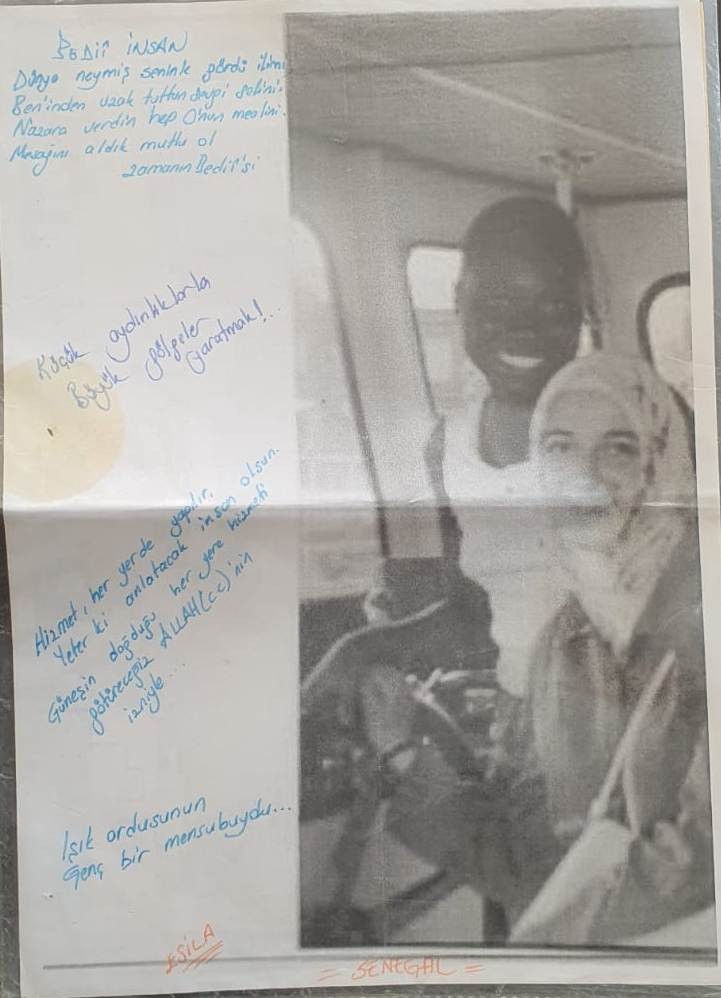 BEDİİ İNSAN
Dünya neymiş seninle gördü ilim
Ben'inden uzak tuttun sevgi selini
Nazara verdin hep O'nun mealini.
Mesajını aldık mutlu ol
zamanın Bedii'si
Küçük aydınlıklarla
Büyük gölgeler
yaratmak!...
Hizmet, her yerde yapılır.
Yeter ki anlatacak insan olsun.
Güneşin doğduğu her yere hizmeti
götüreceğiz ALLAH(cc)'nin
izniyle...
Işık ordusunun
Genç bir mensubuydu...
ESİLA
= SENEGAL =